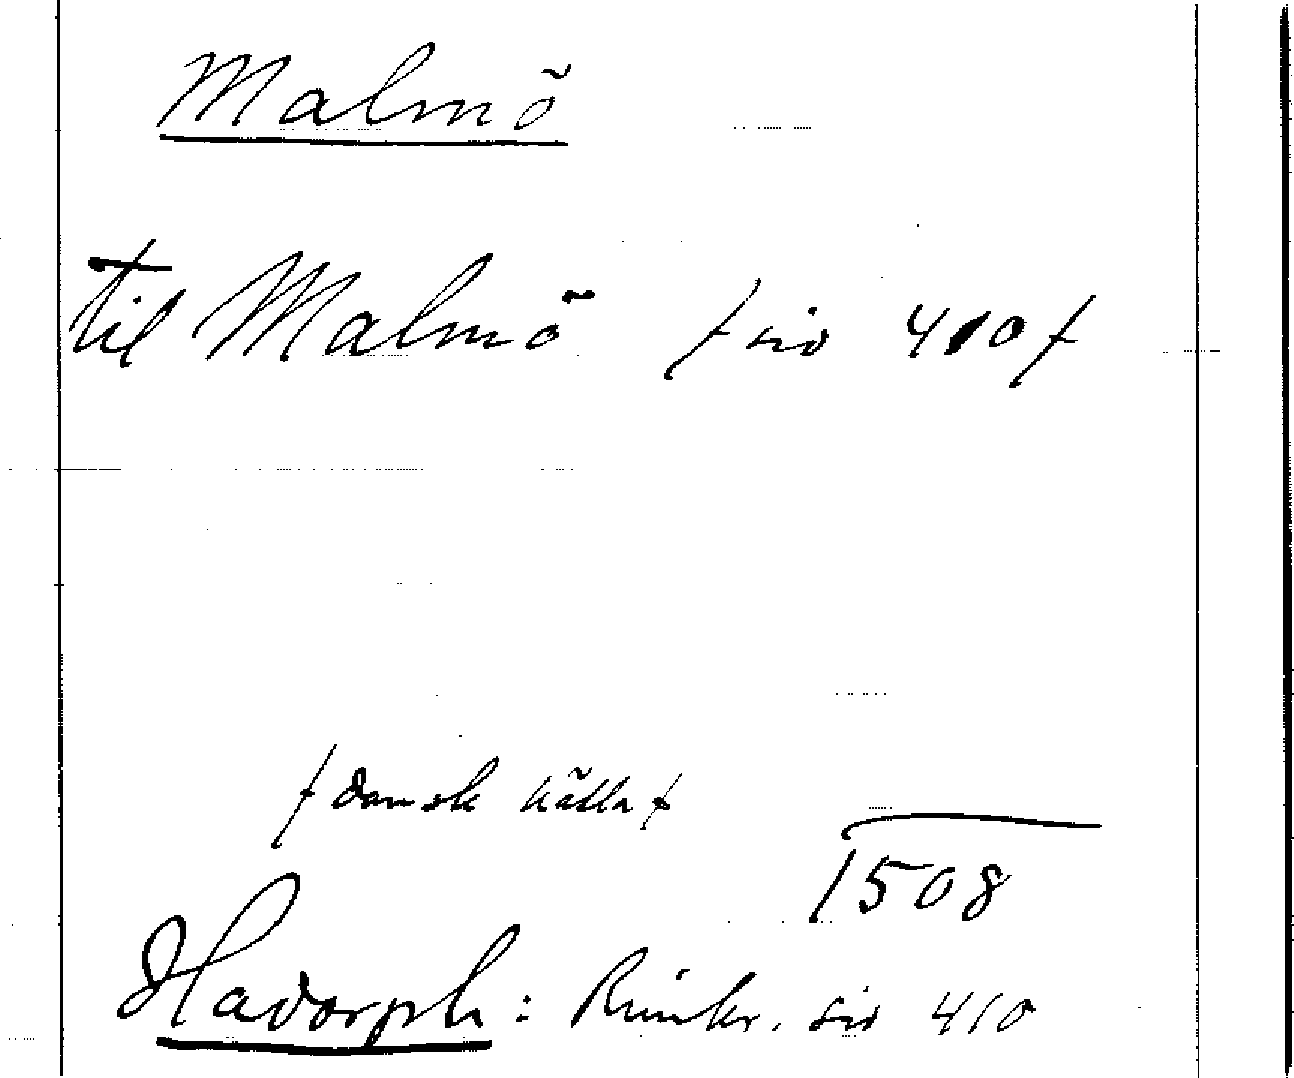 Malmö
til Malmö / sid 410 /
/ dansk källa /
1508
Hadorph: Rimkr. sid 410